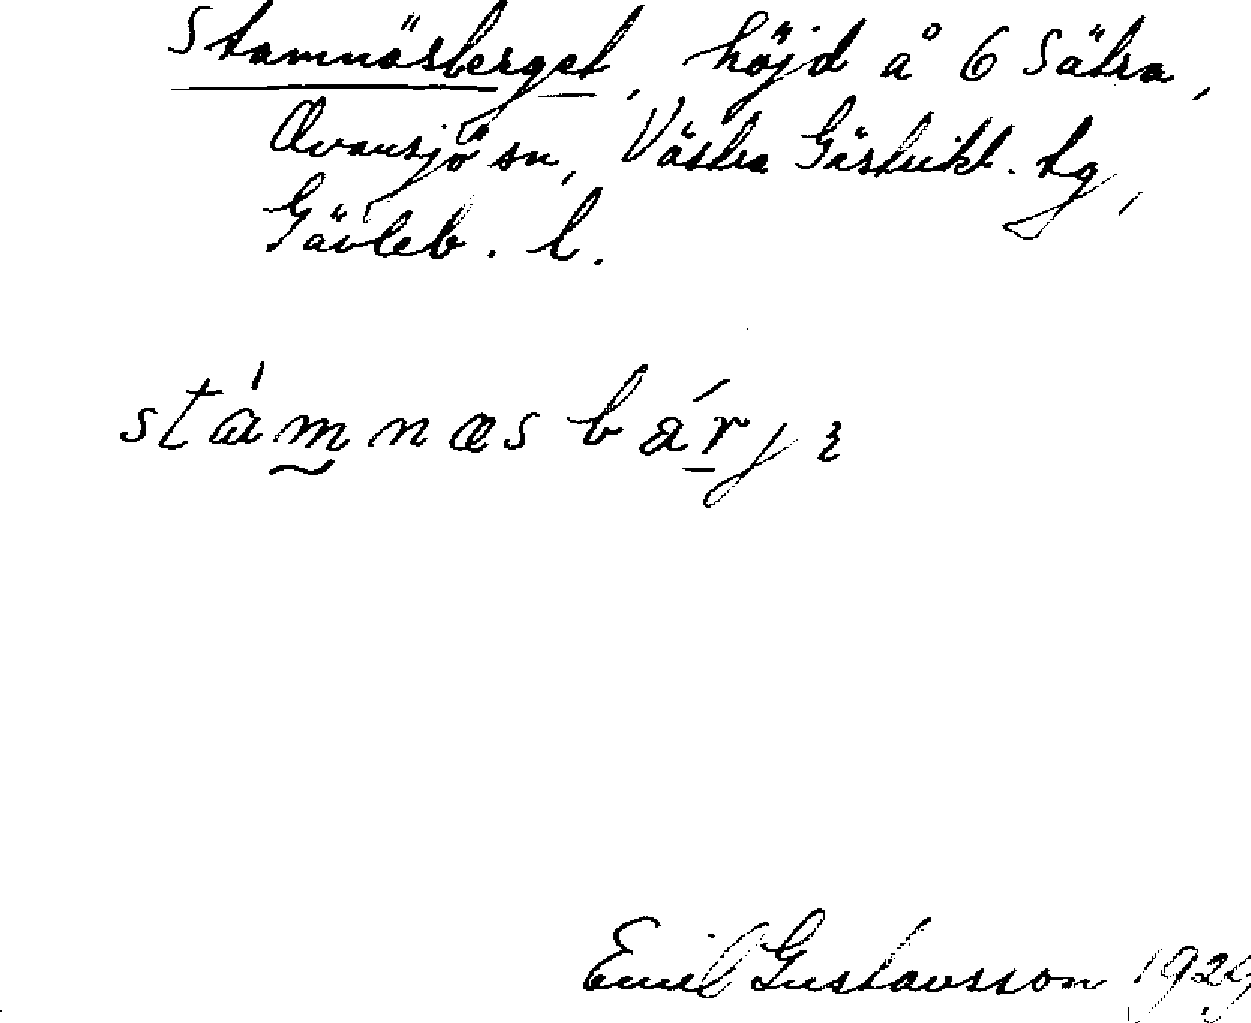 Stamnäsberget, höjd å 6 Sätra,
Ovansjö sn, Västra Gästrikl. tg,
Gävleb. l.
stámnæs bárjɛ
Emil Gustavsson 1929